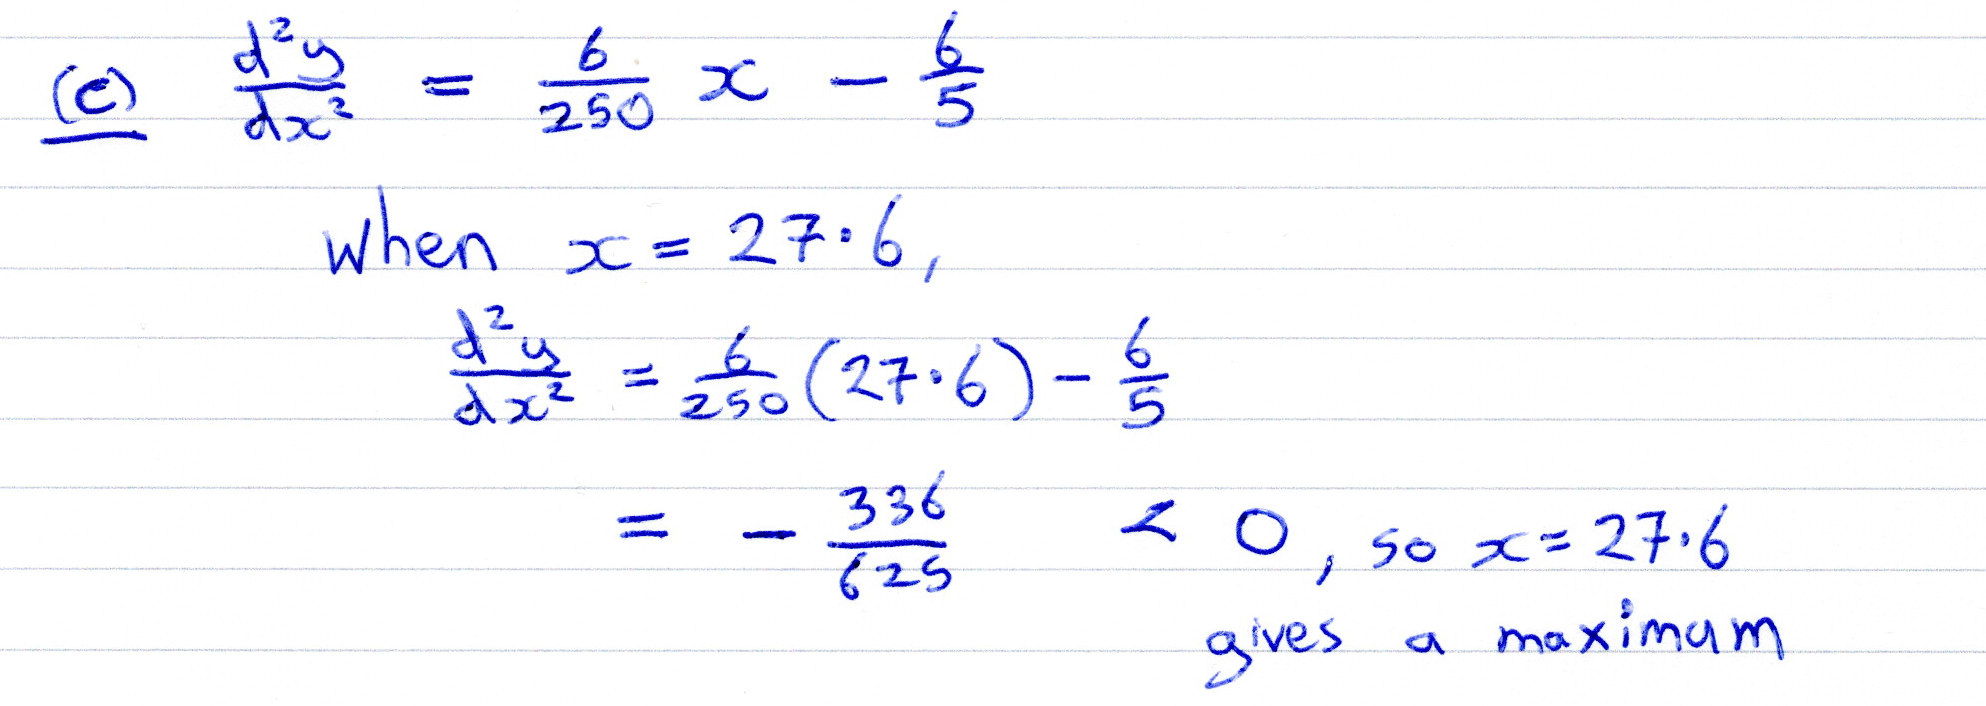 (c) d²y/dx² = 6/250 x - 6/5
When x = 27·6,
d²y/dx² = 6/250 (27·6) - 6/5
= - 336/625 < 0, so x = 27·6
gives a maximum